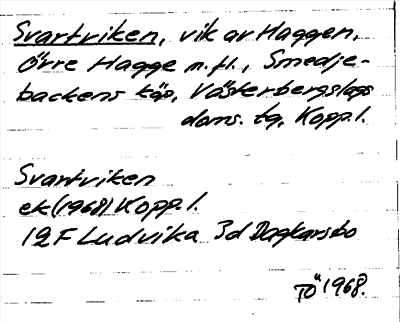 Svartviken, vik av Haggen,
Övre Hagge m.fl., Smedje-
backens köp, Västerbergslags
doms. tg, Kopp. l.
Svartviken
ek (1968) Kopp. l.
12F Ludvika 3d Dagkarsbo
TÖ 1968.